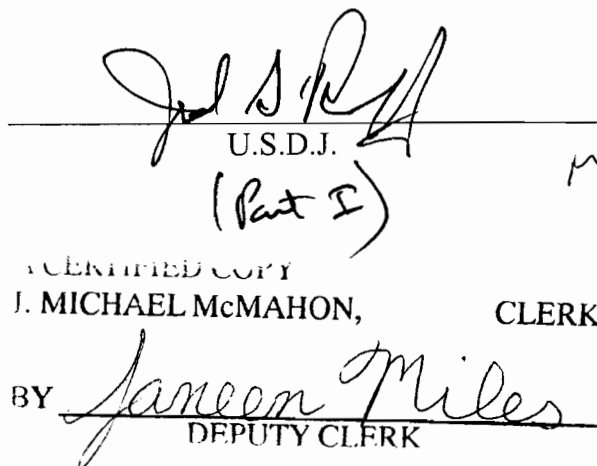 U.S.D.J.
(Part I)
CERTIFIED COPY
J. MICHAEL McMAHON, CLERK
BY Janeen Miles
DEPUTY CLERK